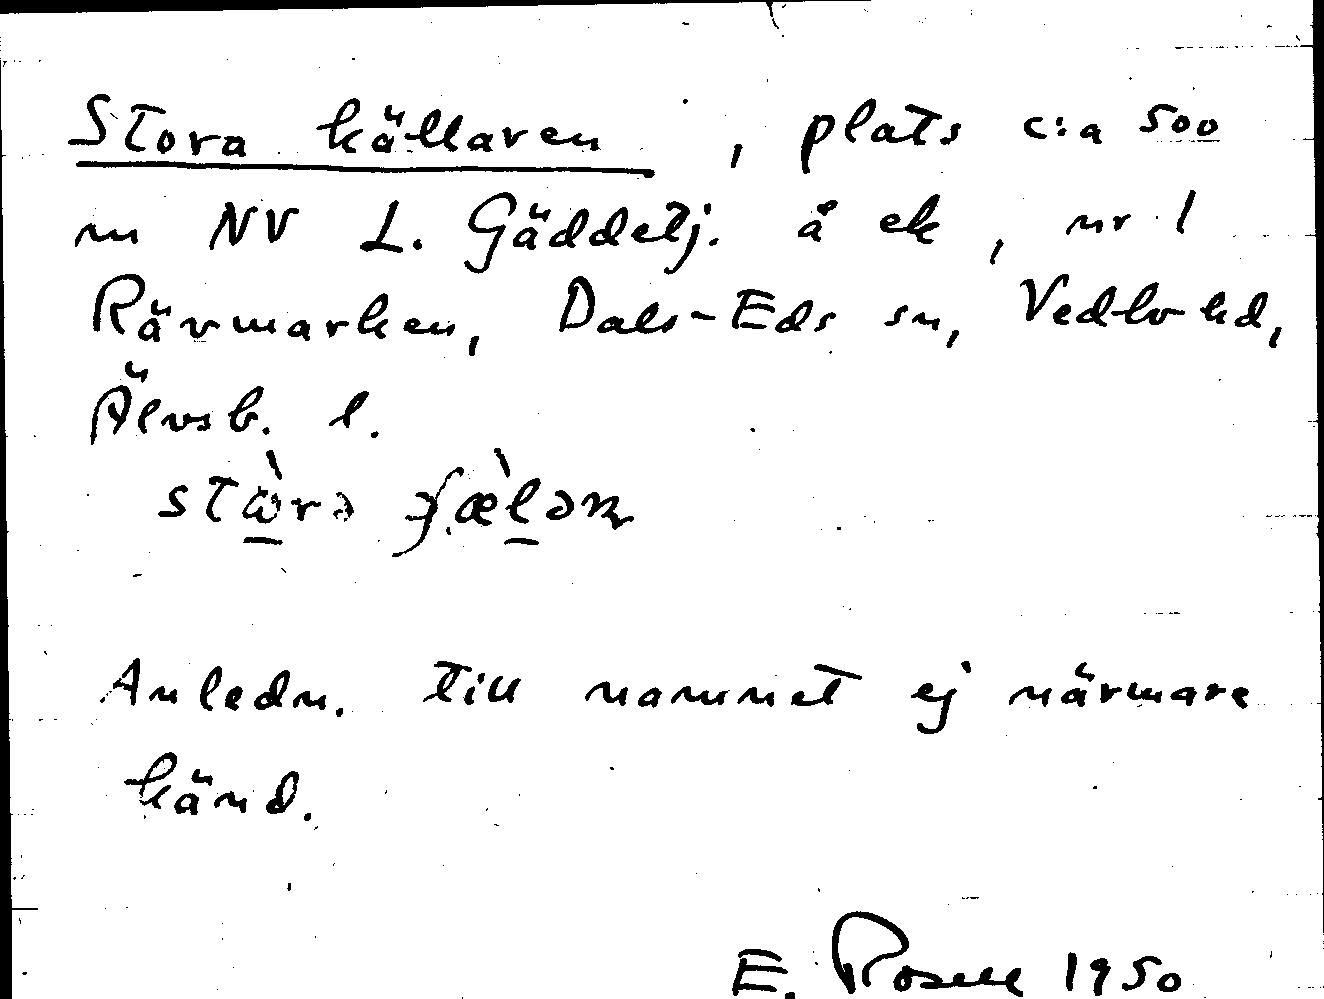 Stora källaren, plats c:a 500
m NV L. Gäddetj. å ek, nr 1
Rävmarken, Dals-Eds sn, Vedbo hd,
Älvsb. l.
Anledn. till namnet ej närmare
känd.
E. Rosell 1950